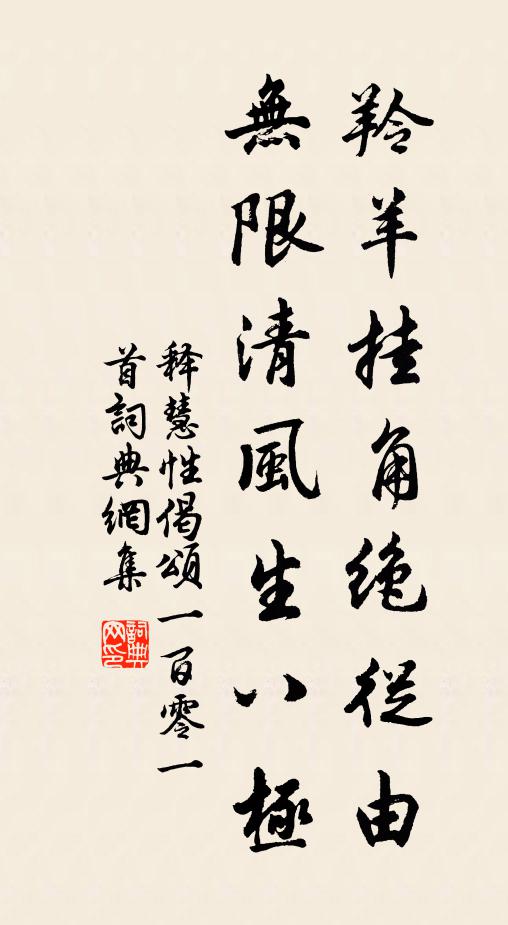 羚羊挂角绝從由
無限清風生八極
释慧性偈頌一百零一
首詞典網集
詞典
网印